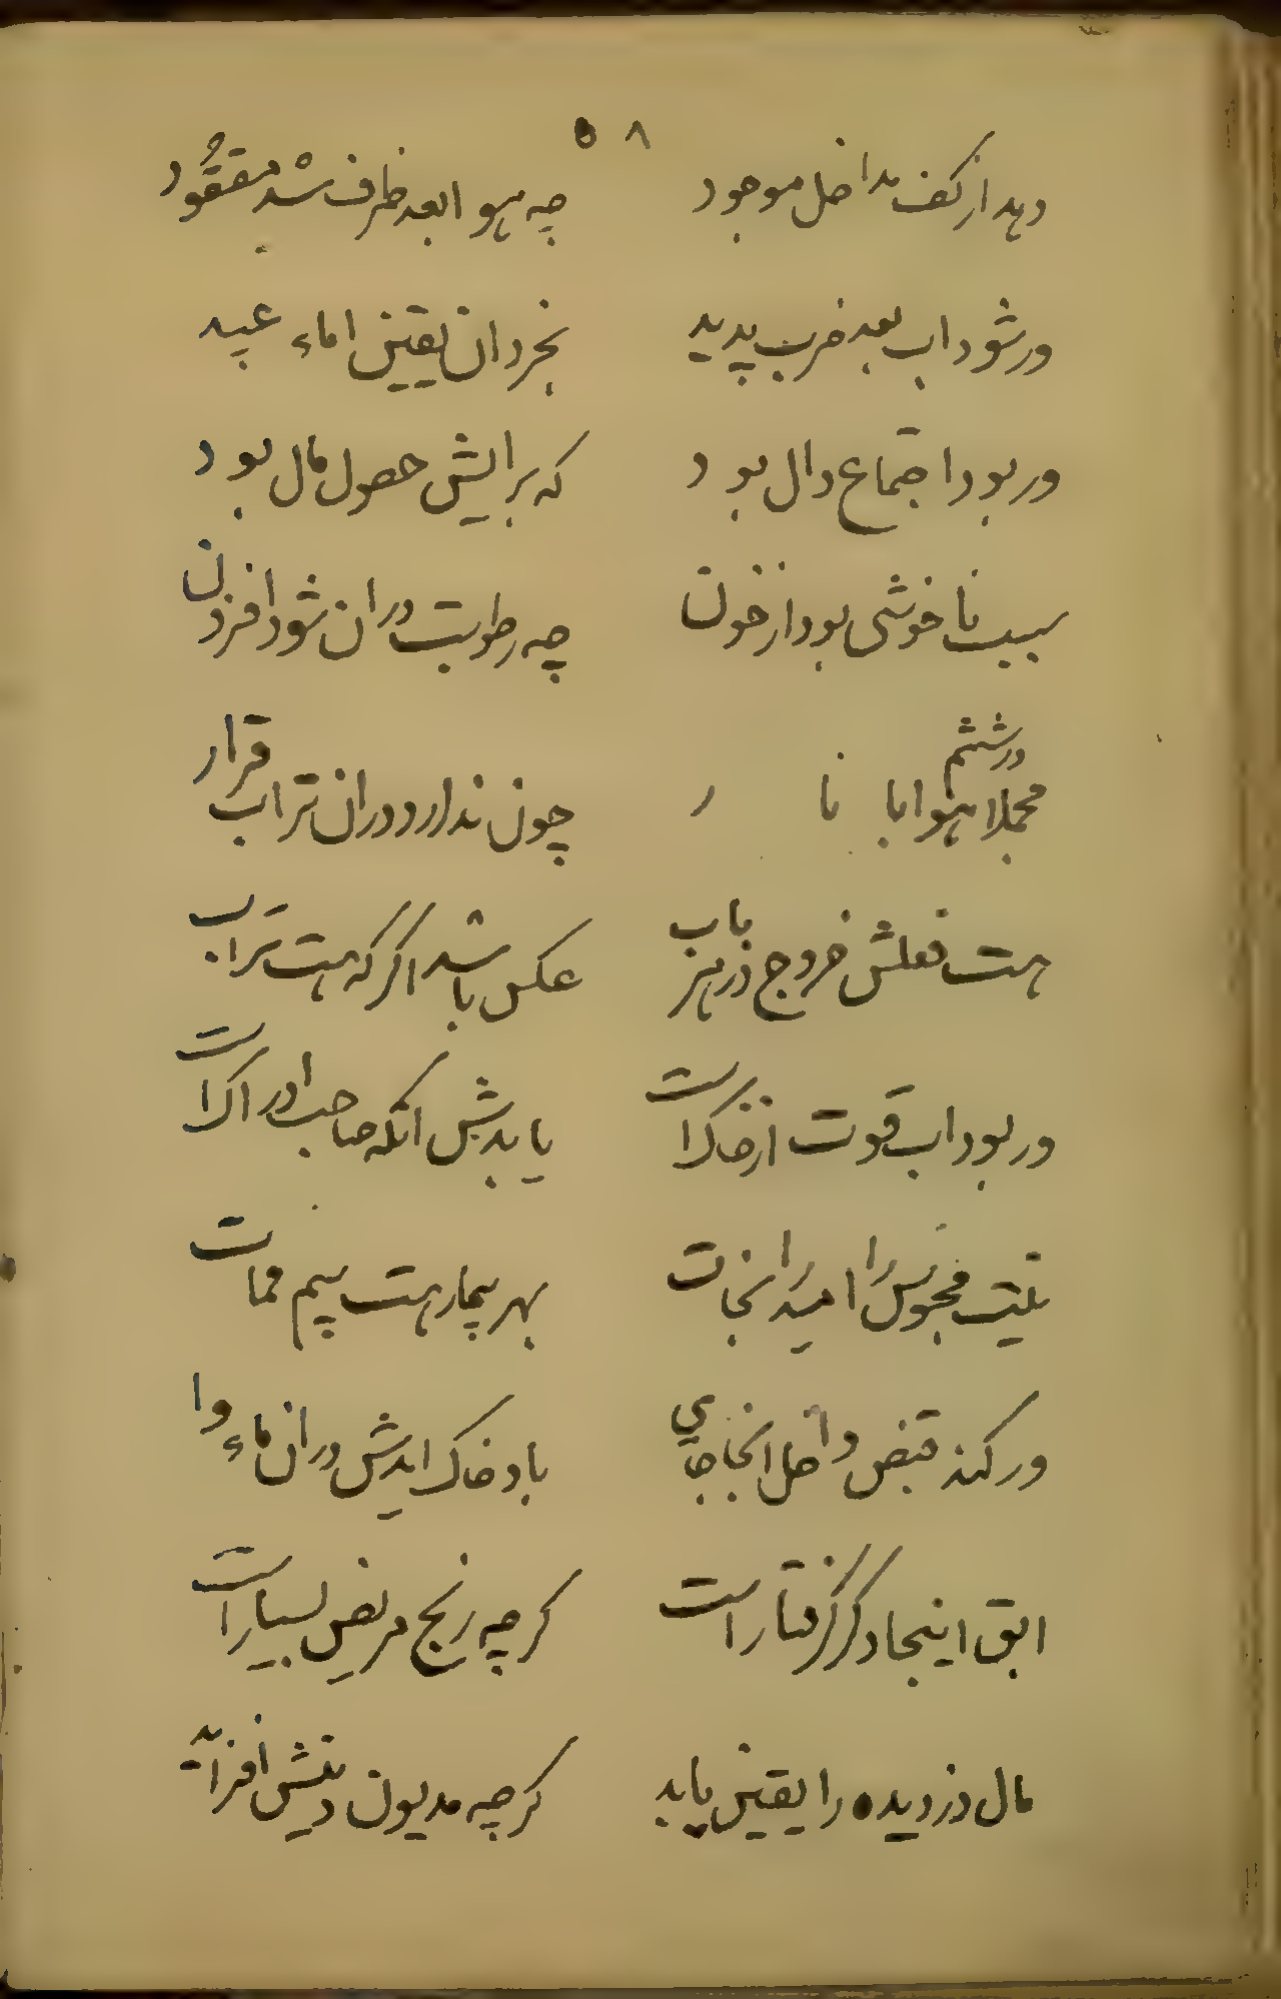 ۵۸
دهد از کف مداخل موجود چه هو ابعد ظرف شد مفقود
ور شود اب بعد ضرب پدید بخر دان یقین اماء عبید
ور بود اجتماع دال بود که برایش حصول مال بود
سبب ناخوشی بود از خون چه رطوبت دران شود افزون
در ششم
مجملا هوا با نا ر چون ندارد دران تراب قرار
هست فعلش خروج در هر باب عکس باشد اکر که هست تراب
ور بود اب قوت از خاکست یابدش انکه صاحب ادراکست
نیست محبوس را امید نجات بهر بیمار هست بیم ممات
ور کند قبض داخل انجا جای باد خاک ایدش دران ماء وا
ابق اینجا دکر کرفتار است کرچه رنج مریض بسیار است
مال دزدیده را یقین یابد کرچه مدیون دینش افزاید